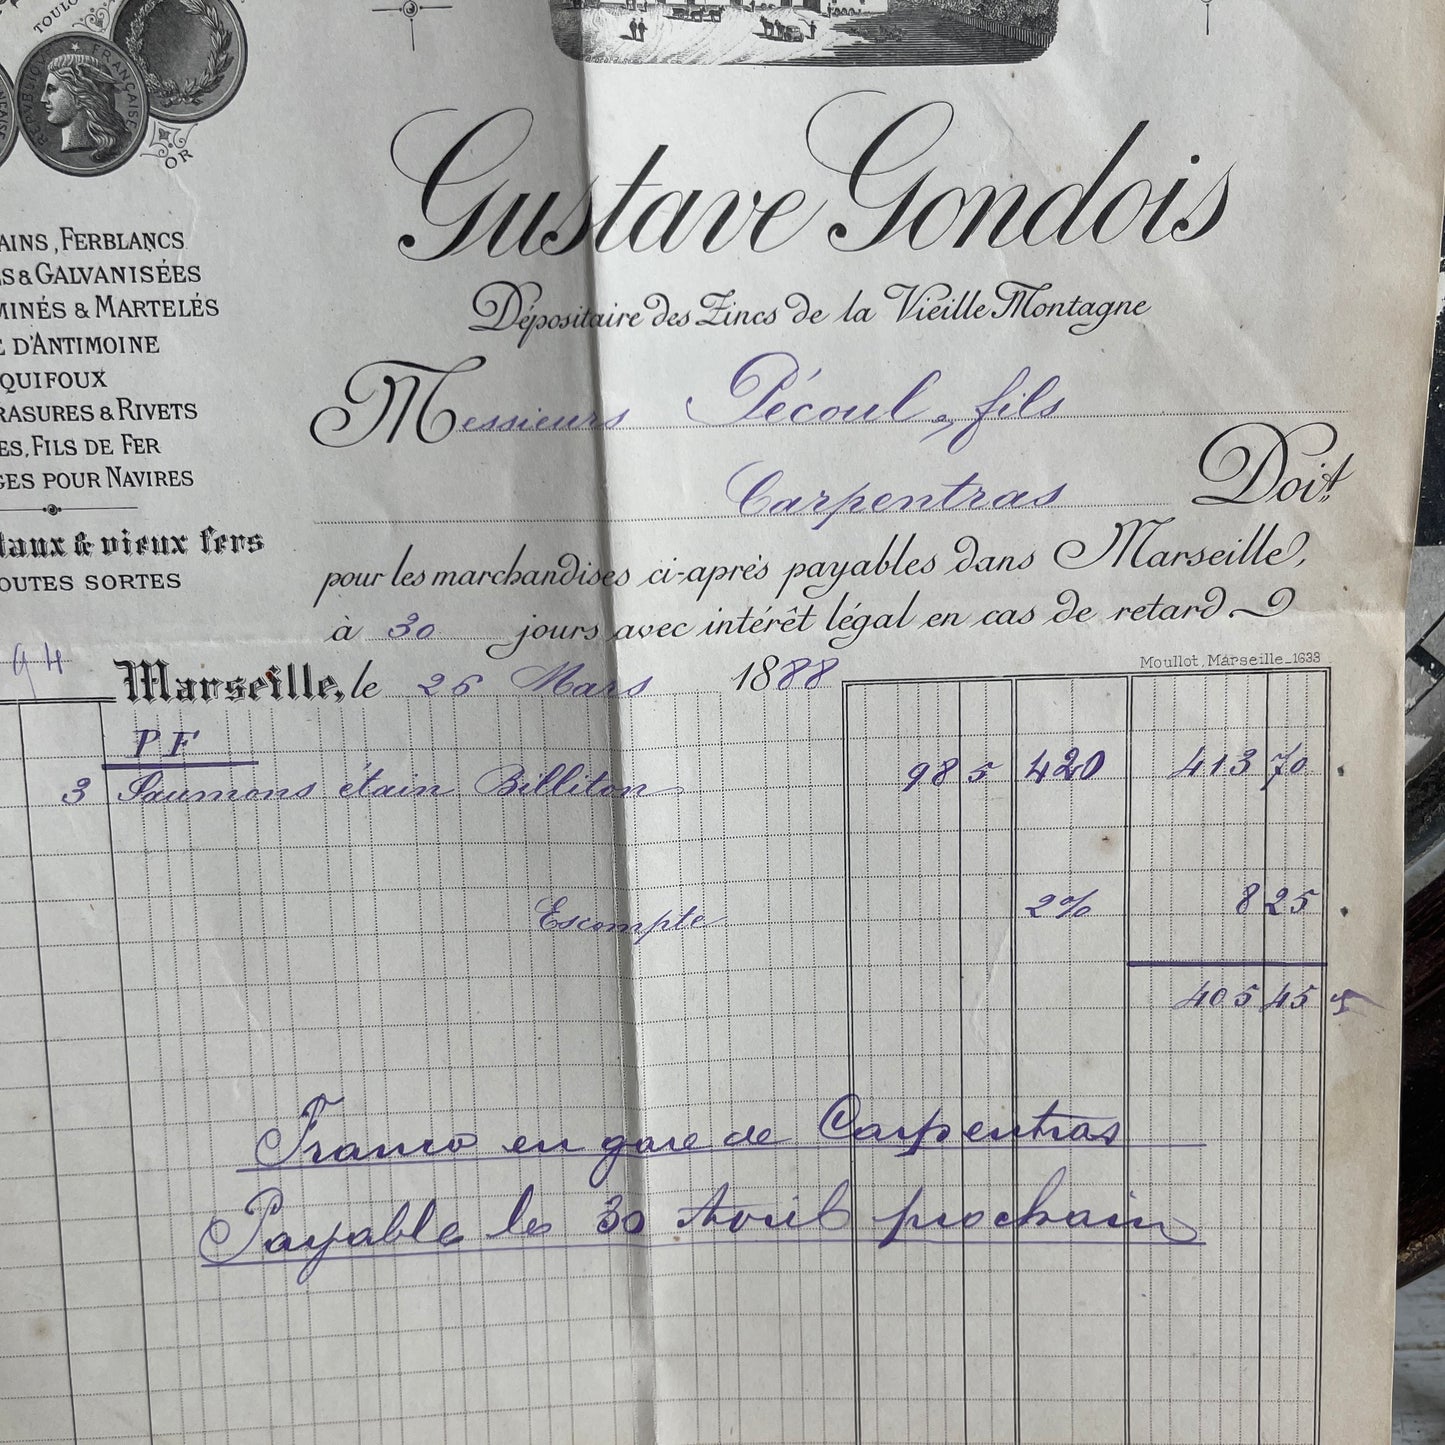 TOULO
RÉPUBLIQUE FRANÇAISE
OR
Gustave Gondois
Dépositaire des Zincs de la Vieille Montagne
AINS, FERBLANCS
S & GALVANISÉES
MINÉS & MARTELÉS
E D'ANTIMOINE
QUIFOUX
RASURES & RIVETS
ES, FILS DE FER
GES POUR NAVIRES
taux & vieux fers
OUTES SORTES
Messieurs Pécoul, fils
Carpentras Doiv.t
pour les marchandises ci-après payables dans Marseille,
à 30 jours avec intérêt légal en cas de retard
Moullot, Marseille_1633
94 Marseille, le 26 Mars 1888
PF
3 Saumons étain Billiton 98 5 420 413 70
Escompte 2% 8 25
405 45
Franco en gare de Carpentras
Payable le 30 Avril prochain